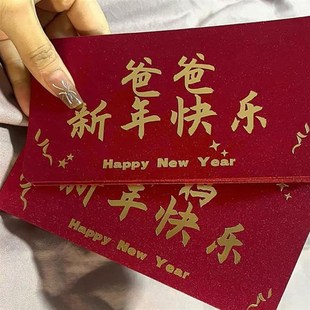 爸爸
新年快乐
Happy New Year
新年快乐
Happy New Year